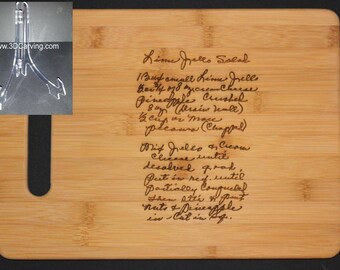 www.3DCarving.com
Lime Jello Salad
1 Box small Lime Jello
Box of 8 oz Cream Cheese
Pineapple Crushed
8 oz (Drain Well)
2 cup or more
pecans (Chopped)
Mix Jello & Cream
Cheese until
desolved good.
Put in ref. until
Partially Congueled
then stir & put
Nuts & Pineapple
in - Cut in Sq.